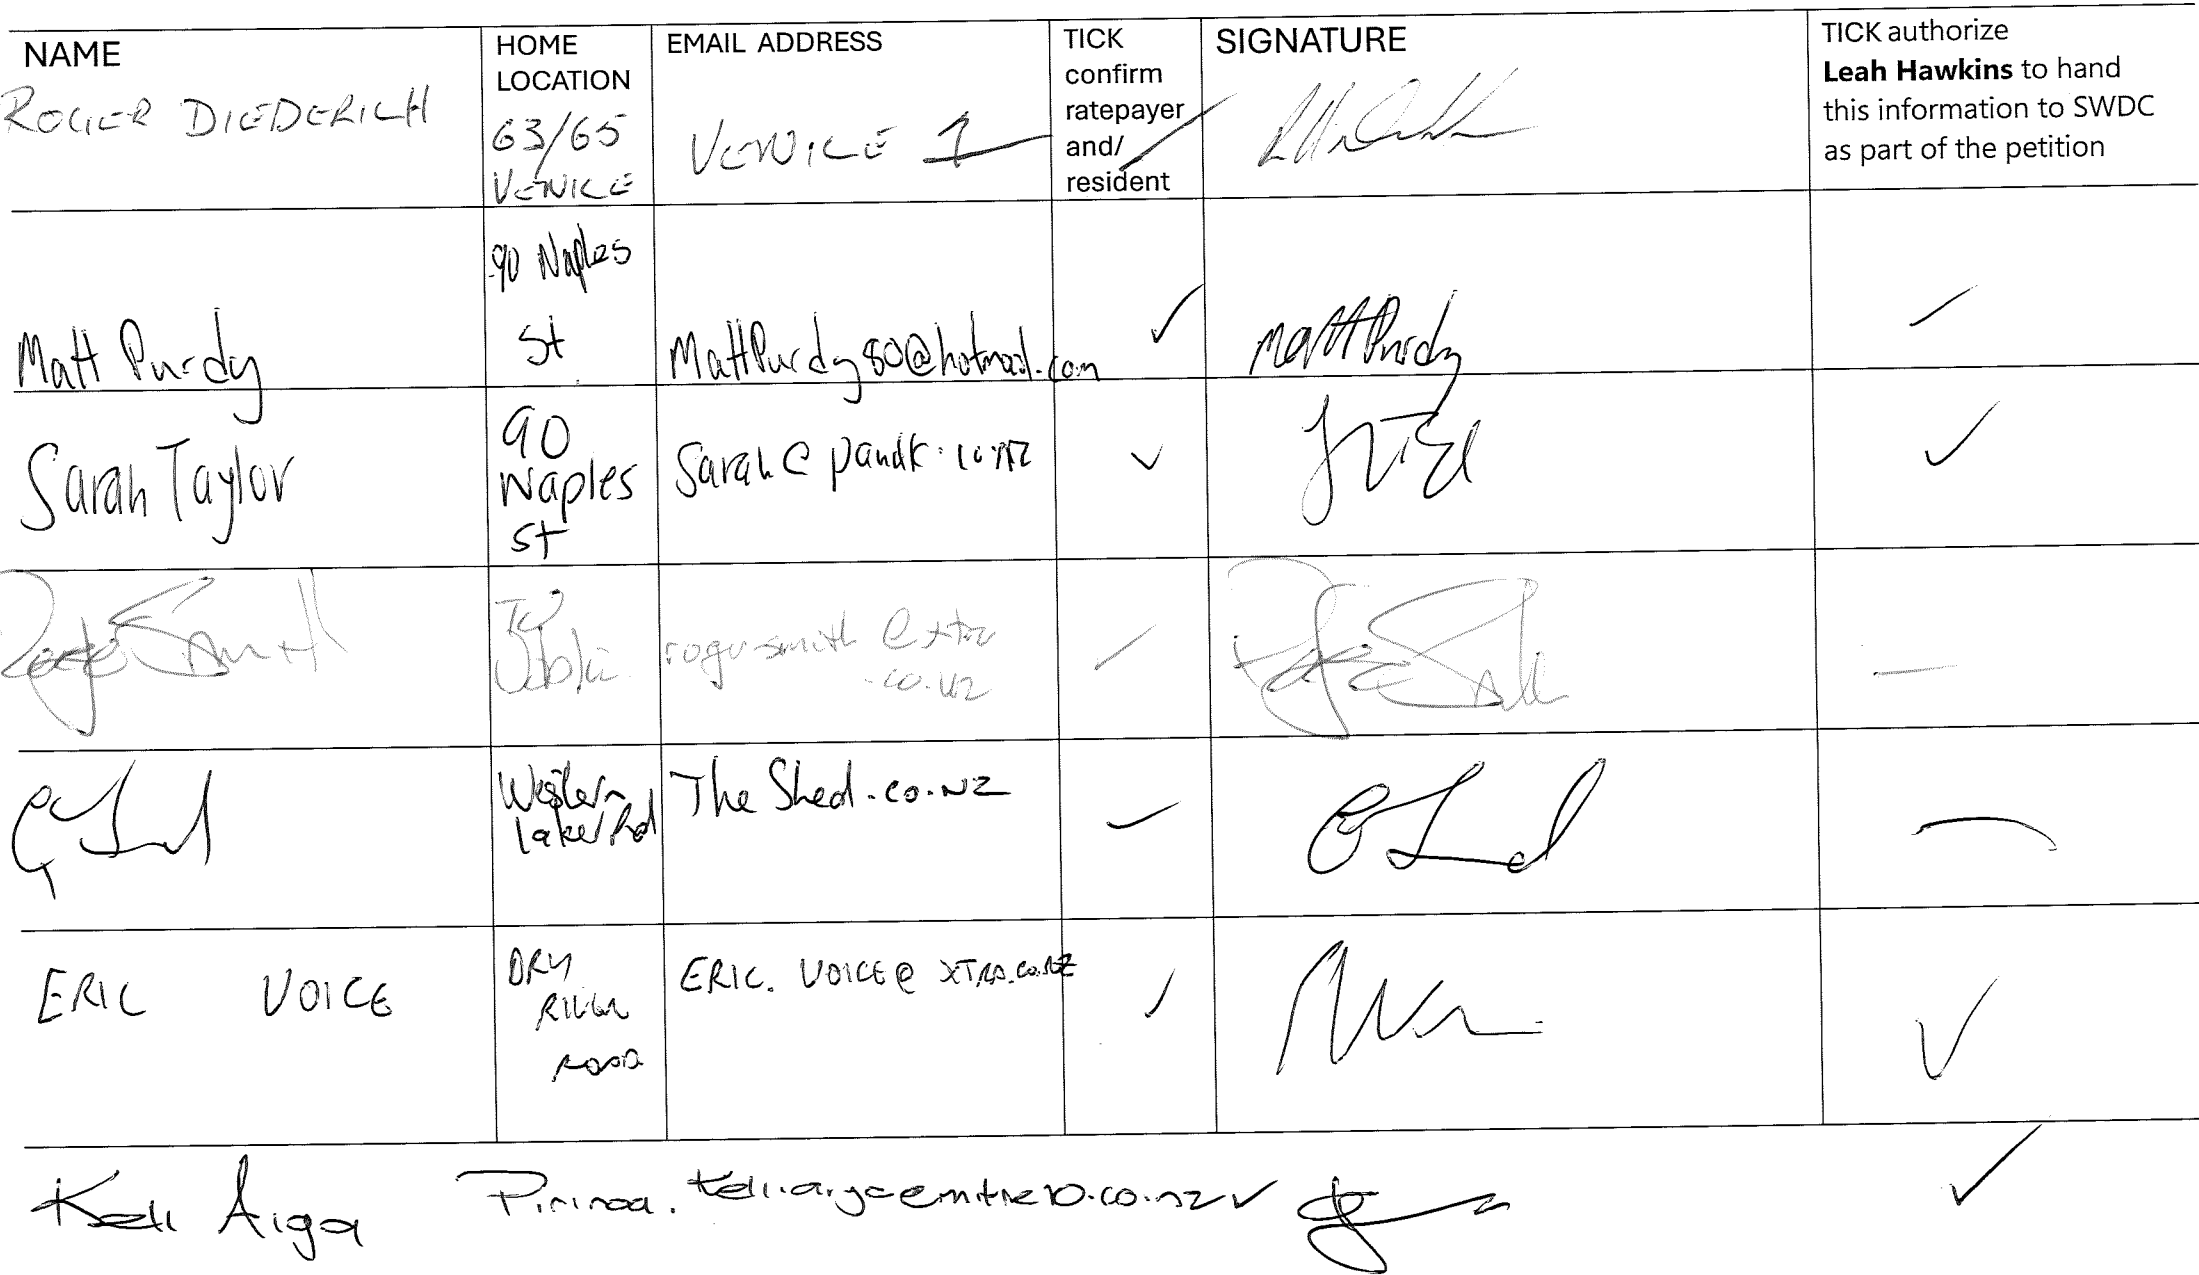 NAME
ROGER DIEDERICH
HOME
LOCATION
63/65
VENICE
EMAIL ADDRESS
VENICE 1
TICK
confirm
ratepayer
and/
resident
SIGNATURE
TICK authorize
Leah Hawkins to hand
this information to SWDC
as part of the petition
Matt Purdy
90 Naples
St
MattPurdy80@hotmail.com
Matt Purdy
Sarah Taylor
90
Naples
St
Sarah@pandk.co.nz
Roger Smith
rogersmith@xtra
.co.nz
Western
Lake Rd
The Shed.co.NZ
ERIC VOICE
DRY
RIVER
ROAD
ERIC.VOICE@XTRA.CO.NZ
Keli Aiga Pirinoa. keli.aiga@mitre10.co.nz